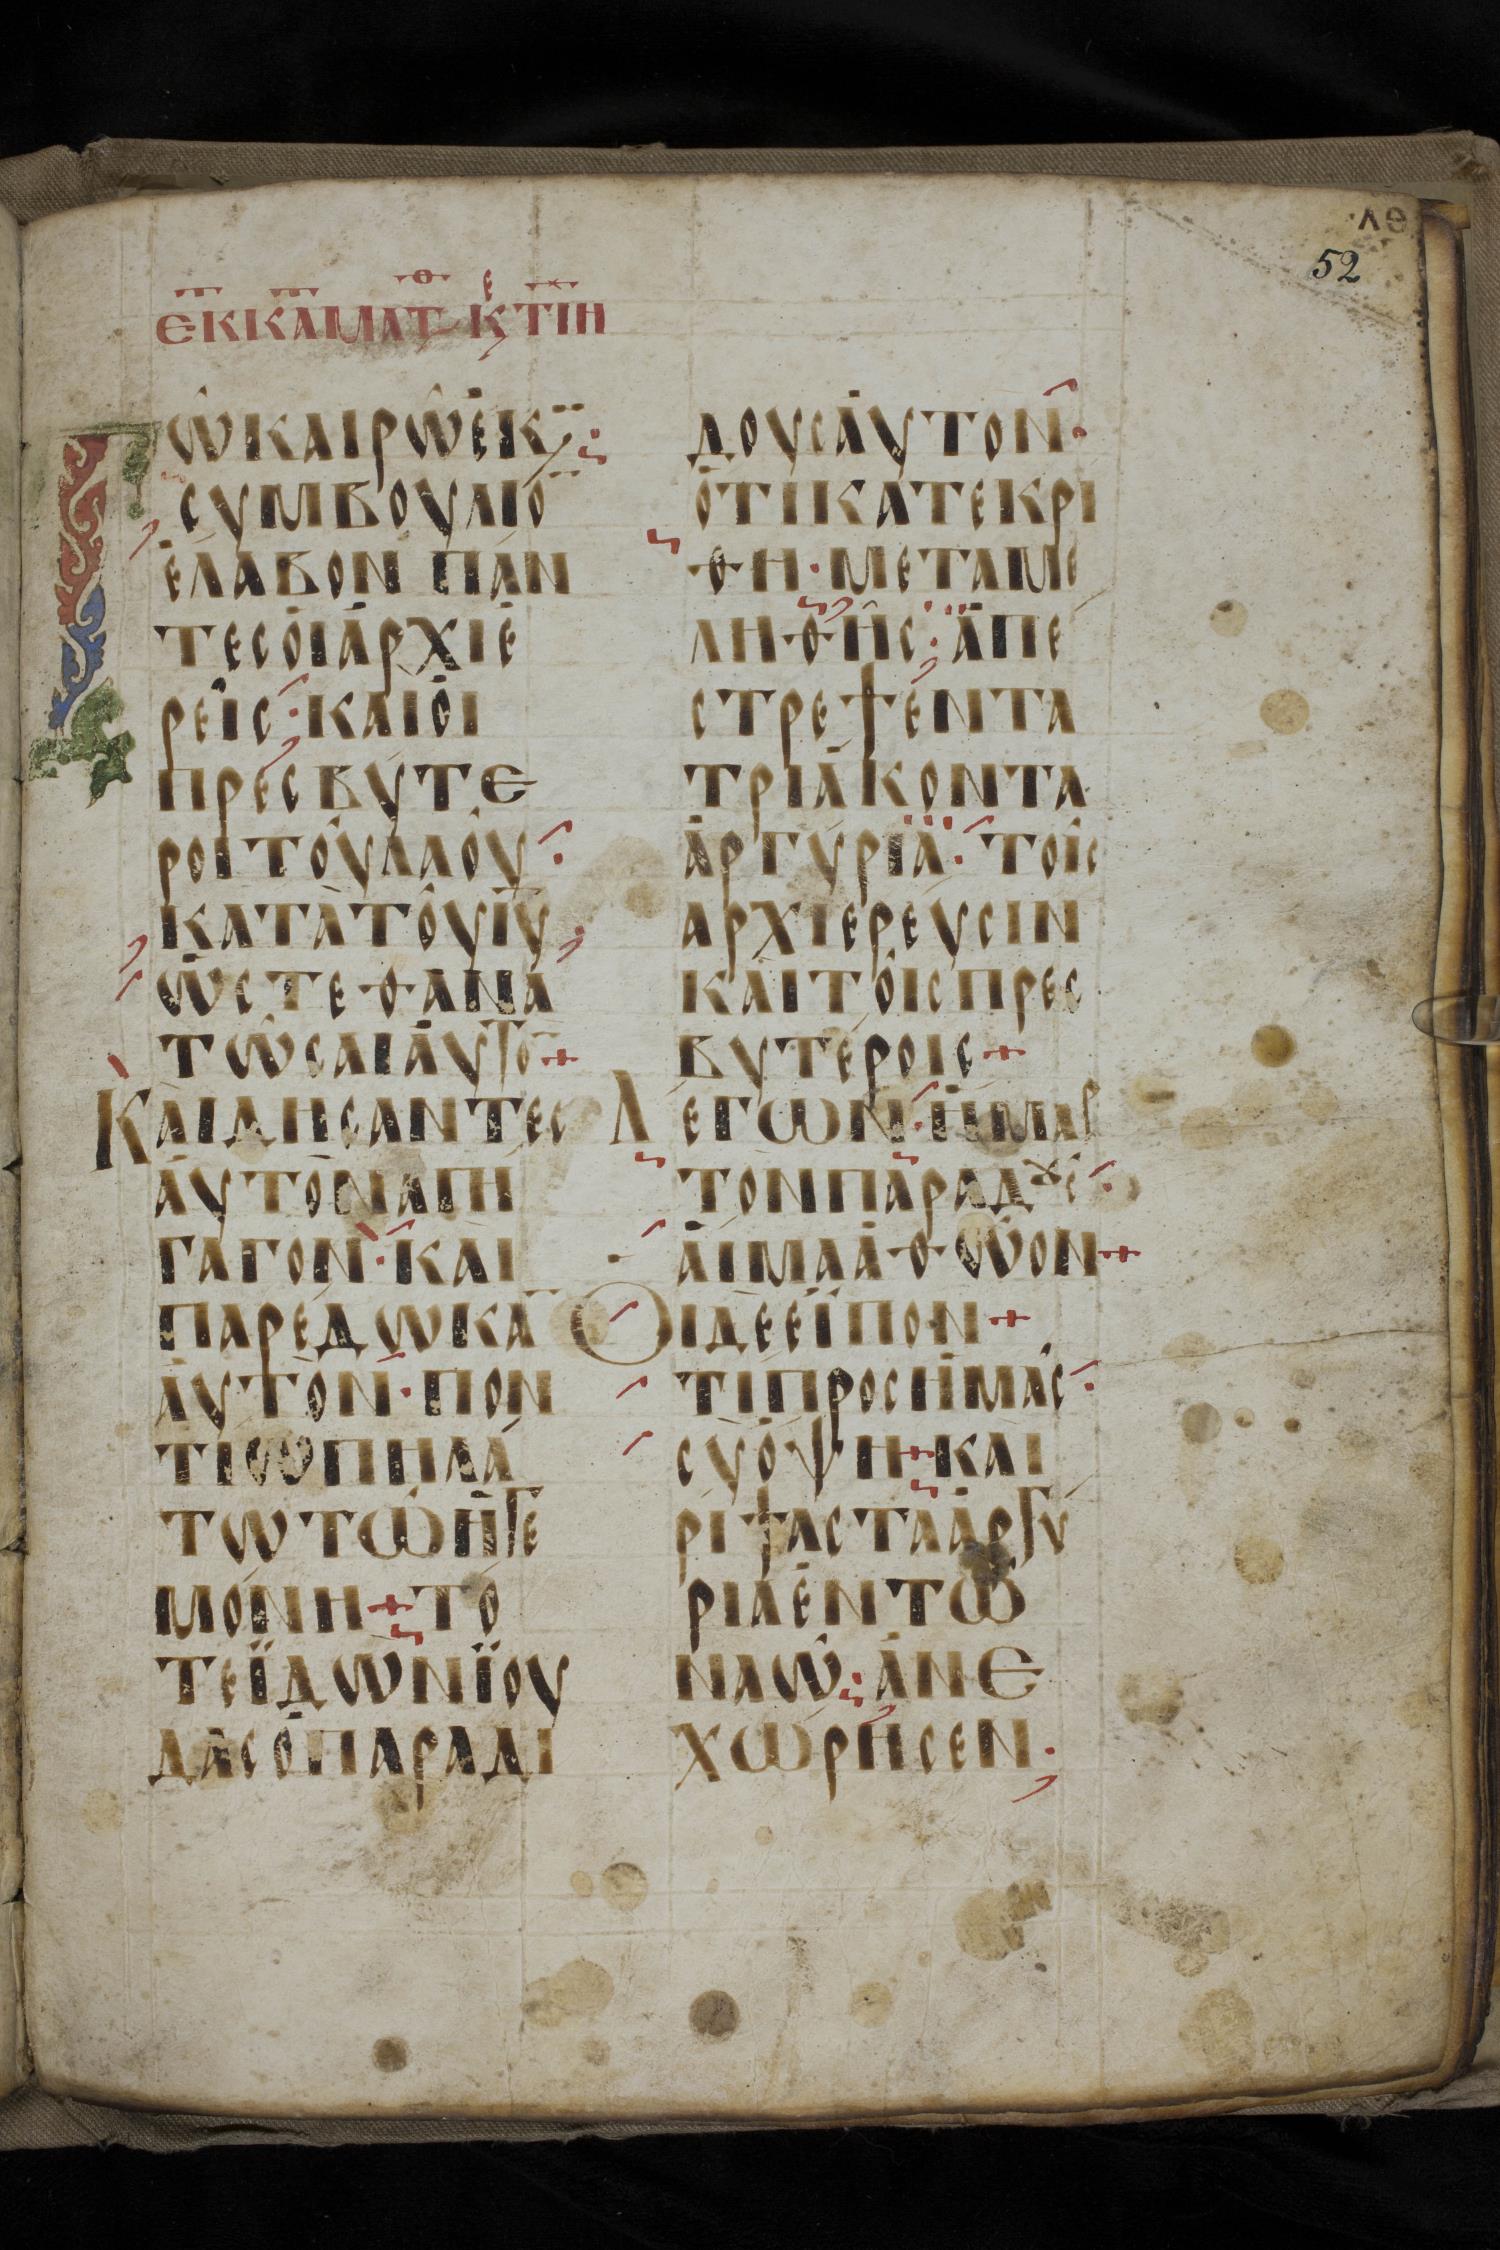 ΛΘ
52
ΕΚ ΚΑ ΜΑΤΘ Κε ΤΗ
Τῶ ΚΑΙΡῶ ἐΚ
ϹΥΜΒΟΥΛΙΟ̅
ἐΛΑΒΟΝ ΠΑΝ
ΤΕϹ ὁΙ ἀΡΧΙΕ
ΡΕῖϹ· ΚΑΙ ὁΙ
ΠΡΕϹΒΥΤΕ
ΡΟΙ ΤΟῦ ΛΑΟῦ·
ΚΑΤΑ ΤΟῦ ΙΥ̅·
ὥϹΤΕ ΘΑΝΑ
ΤῶϹΑΙ ἀΥΤΟ̅+
ΚΑΙ ΔΗϹΑΝΤΕϹ
ἀΥΤΟΝ ΑΠΗ
ΓΑΓΟΝ· ΚΑΙ
ΠΑΡΕΔΩΚΑ̅
ἀΥΤὸΝ· ΠΟΝ
ΤΙΩ ΠΗΛΑ
ΤΩ ΤΩ ἡΓΕ
ΜΟΝΗ+ ΤΟ
ΤΕ ΪΔΩΝ ΪΟΥ
ΔΑϹ ὁ ΠΑΡΑΔΙ
ΔΟΥϹ ἀΥΤΟΝ·
ὅΤΙ ΚΑΤΕΚΡΙ
ΘΗ· ΜΕΤΑΜΕ
ΛΗΘΗϹ· ἀΠΕ
ϹΤΡΕΨΕΝ ΤΑ
ΤΡΙΑΚΟΝΤΑ
ἀΡΓΥΡΙΑ· ΤΟῖϹ
ΑΡΧΙΕΡΕΥϹΙΝ
ΚΑΙ ΤΟῖϹ ΠΡΕϹ
ΒΥΤΕΡΟΙϹ+
ΛΕΓΩΝ· ἡΜΑΡ
ΤΟΝ ΠΑΡΑΔΧϹ·
ΑἷΜΑ ἀΘΩΟΝ+
ΟΙ ΔΕ ΕΪΠΟΝ+
ΤΙ ΠΡΟϹ ἡΜΑϹ·
ϹΥ ὄΨΗ+ ΚΑΙ
ΡΙΨΑϹ ΤΑ ἀΡΓΥ
ΡΙΑ ἐΝ ΤΩ
ΝΑῶ· ἀΝΕ
ΧΩΡΗϹΕΝ·